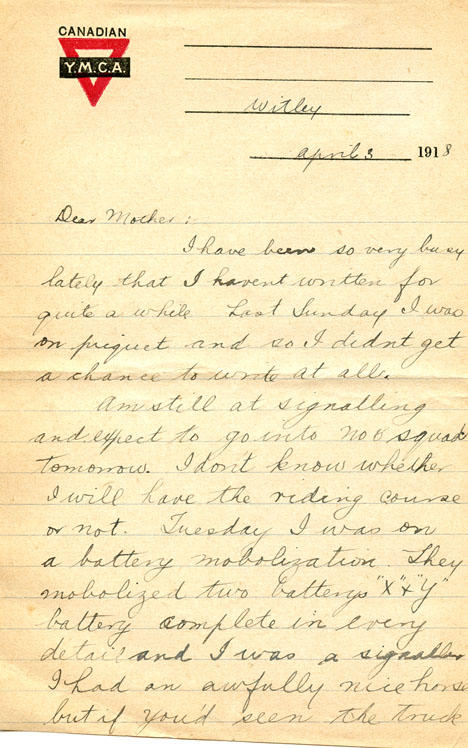 CANADIAN
Y.M.C.A.
Witley
April 3 1918
Dear Mother:
I have been so very busy
lately that I havent written for
quite a while Last Sunday I was
on piquet and so I didnt get
a chance to write at all.
Am still at signalling
and expect to go into No 6 squad
tomorrow. I dont know whether
I will have the riding course
or not. Tuesday I was on
a battery mobolization. They
mobolized two batterys "X" & "Y"
battery complete in every
detail and I was a signaller
I had an awfully nice horse
but if you'd seen the truck